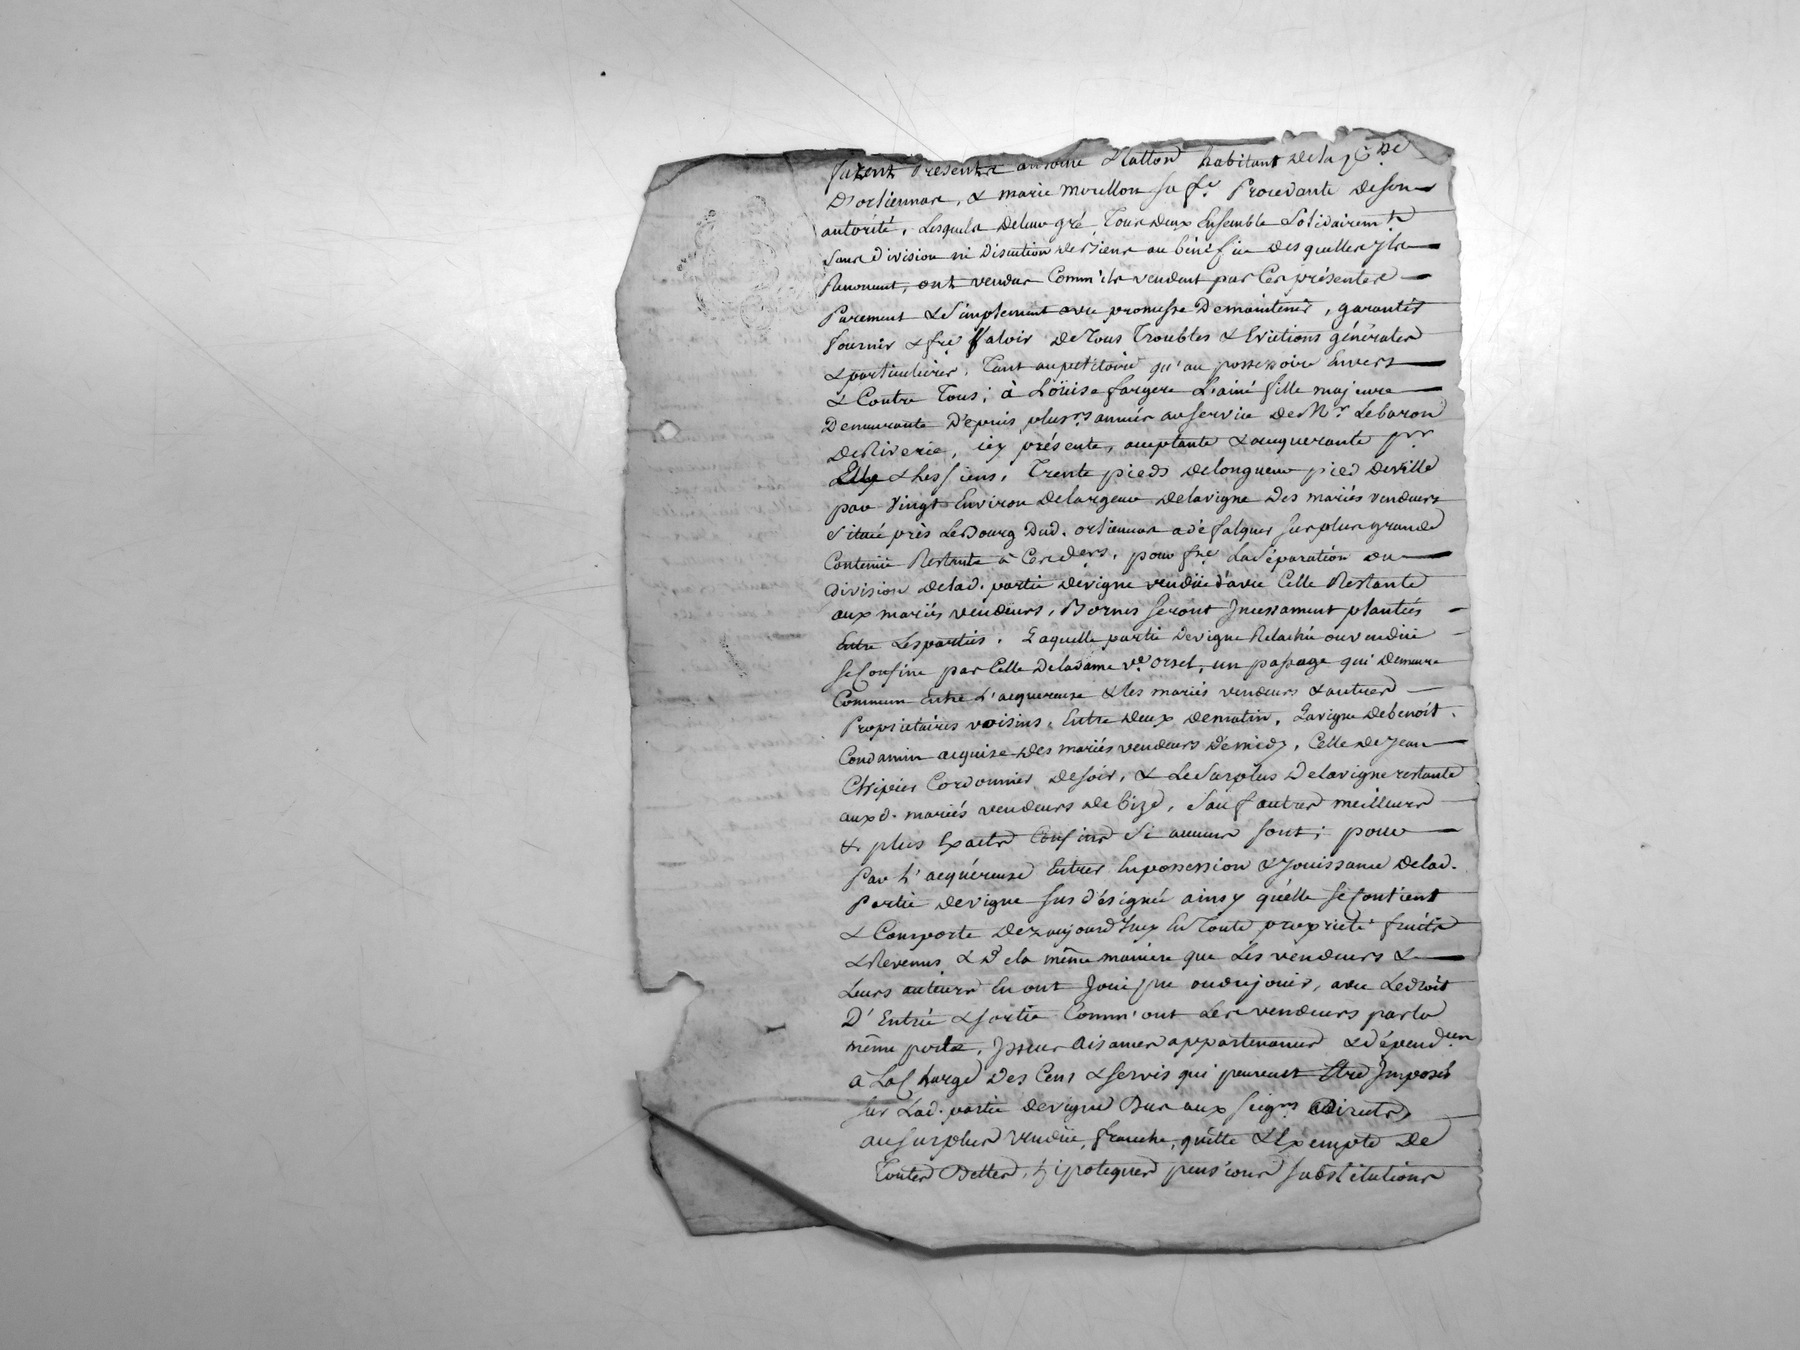 furent Presents antoine Natton habitant de la p.sse de
D'ortiennas, & marie morillon sa fe. Procedante de son
autorité, Lesquels de leur gré Tous deux Ensemble Solidairemt.
Sans division ni discution de biens au bénéfice desquelles ils
Renoncent, ont vendus Comm'ils vendent par Ces présentes
Purement & Simplement avec promesse De maintenir, garantir
fournir & fre. Valoir de Tous Troubles & Evictions générales
& particulieres, Tant au petitoire qu'au possessoire Envers
& Contre Tous; à Loüise fargere L'ainé fille majeure
Demeurante Depuis plusrs. années au service de Mr. Lebaron
De Riverie, icy présente, acceptante & acquerante pr.
Elle & Les siens, Trente pieds de longueur pied de ville
par Vingt Environ de largeur de la vigne des mariés vendeurs
Située près Le Bourg dud. ortiennas a défalquer sur plus grande
Contenue Restante à Ces ders. pour fre. La Séparation ou
division de lad. partie de vigne vendüe d'avec Celle Restante
aux mariés vendeurs, Bornes seront Incessament plantées
Entre Les parties. Laquelle partie de vigne Relachée ou vendüe
se Confine par Celle de la dame ve. orsel, un passage qui demeure
Commun Entre L'acquereuse & les mariés vendeurs & autres
Proprietaires voisins, Entre deux de matin, La vigne de benoit
Condamin acquise des mariés vendeurs de midy, Celle de Jean
Chipier Cordonnier de soir, & Le Surplus de la vigne restante
auxd. mariés vendeurs de bize, Sauf autres meilleurs
& plus Exacts Confins Si aucuns sont; pour
Par L'acquéreuse Entrer En possession & Jouissance de lad.
Partie de vigne sus désignée ainsy qu'elle se Contient
& Comporte dez aujourd'huy En Toute propriété fruits
& Revenus & de la même maniere que Les vendeurs &
Leurs auteurs En ont Joui, pu ou du jouir, avec Le droit
D'Entrée & sortie Comm'ont Les vendeurs par la
même porte, Issues Aisances appartenances & dépendces
a La Charge des Cens & servis qui peuvent Etre Imposés
sur Lad. partie de vigne Dus aux seigrs. Directs,
au surplus vendüe, franche, quitte & Exempte de
Toutes Dettes, hipoteques pensions substitutions